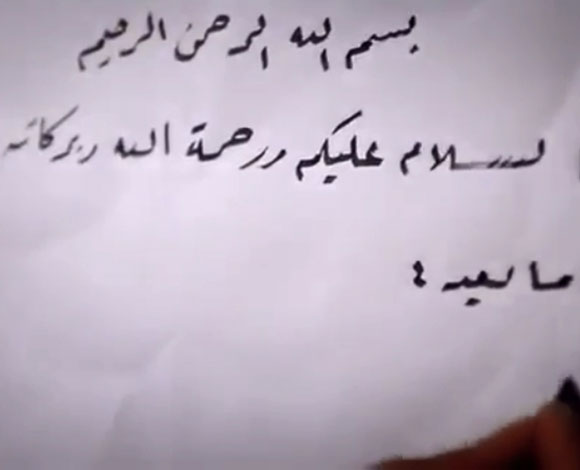 بسم الله الرحمن الرحيم
لسلام عليكم ورحمة الله وبركاته
ما بعد :